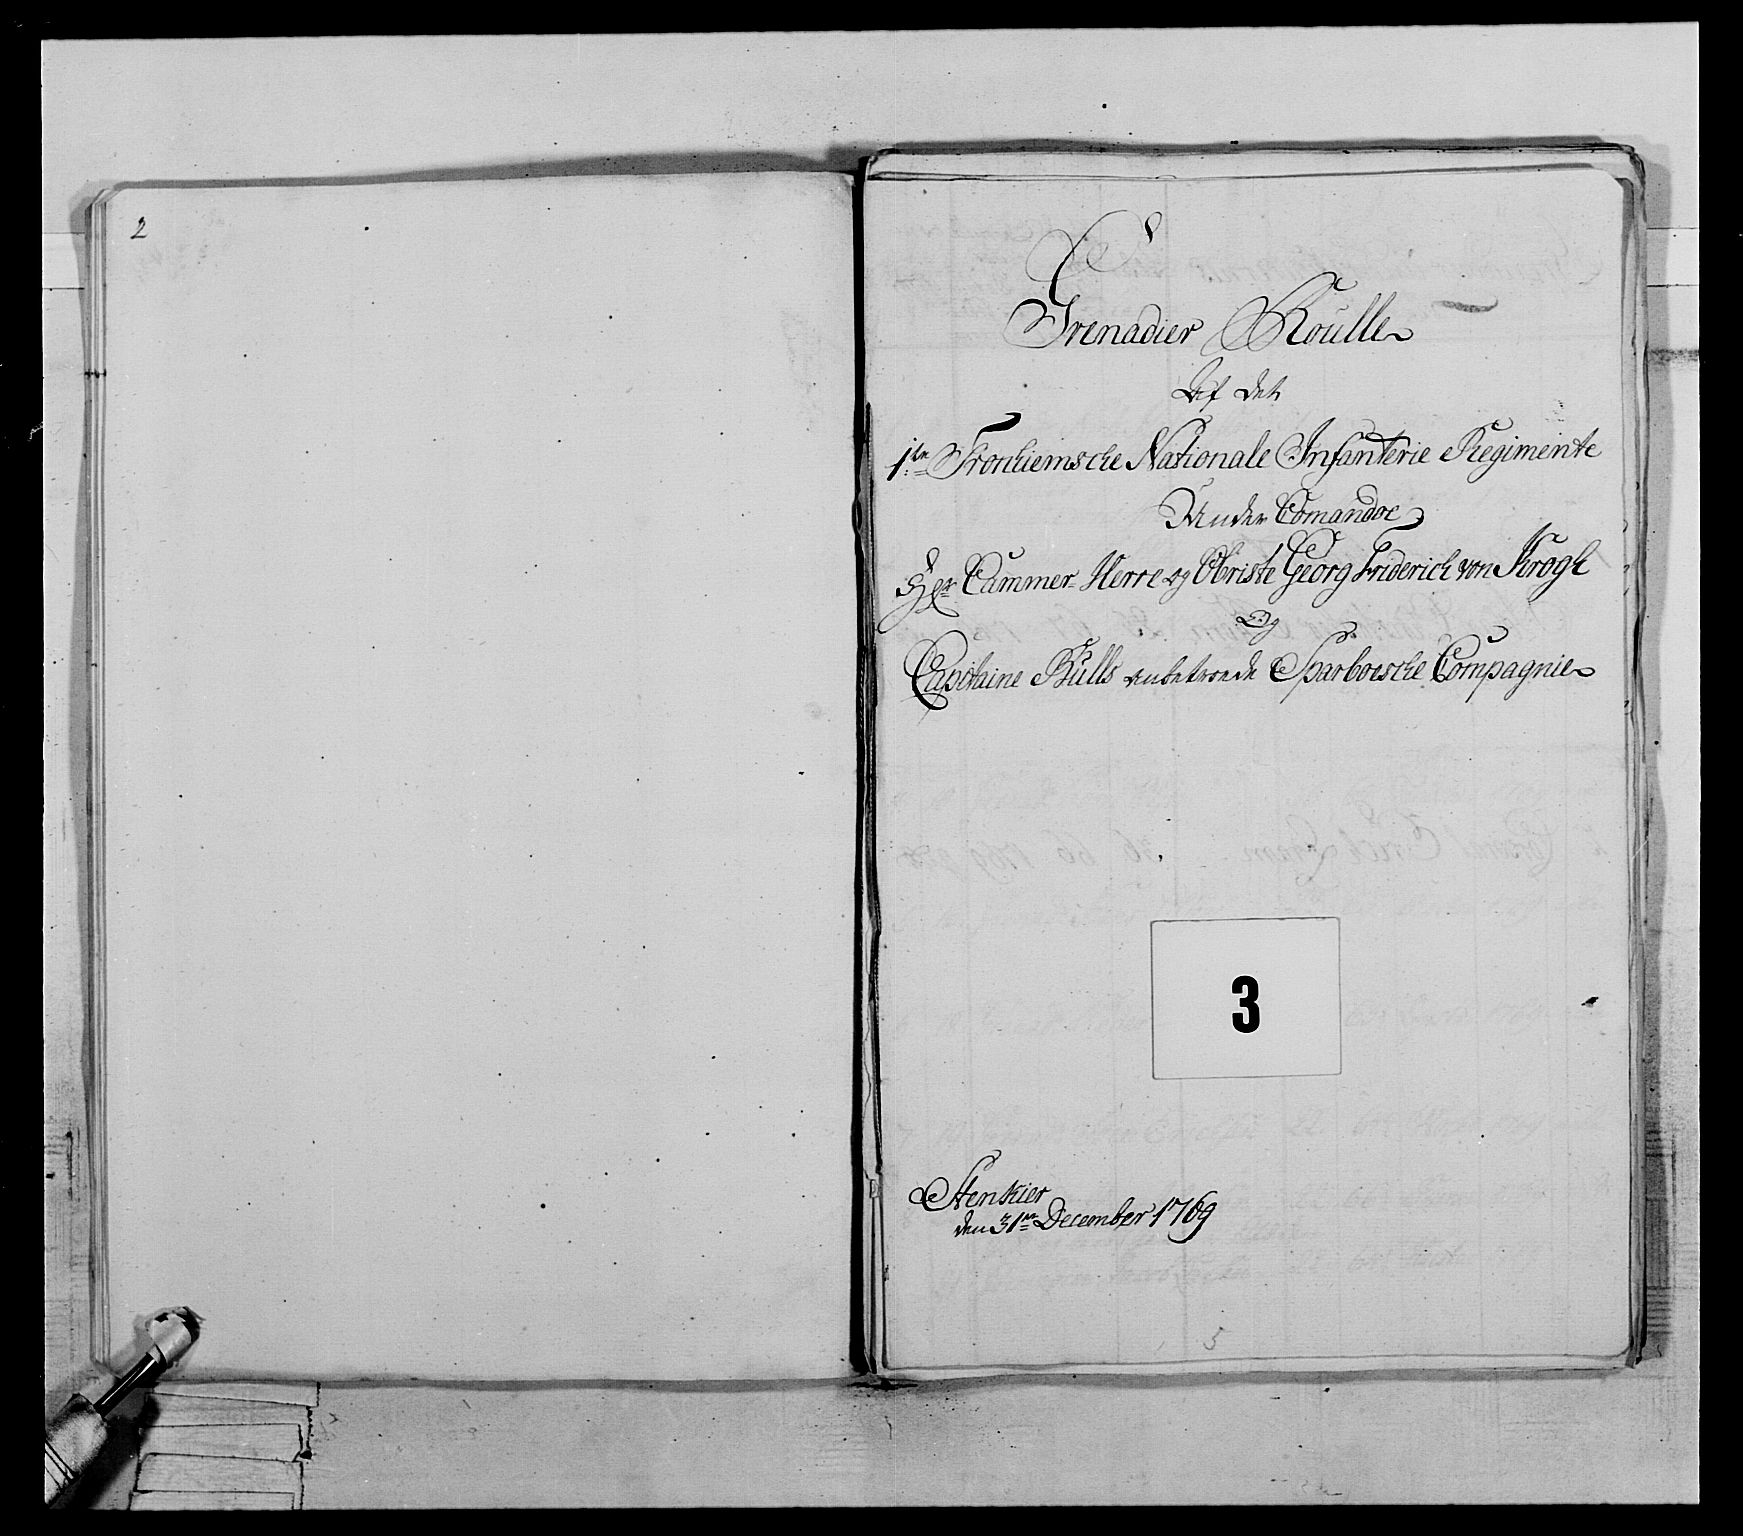 2
Grenadier Roulle
Af det
1te Tronhiemsche Nationale Infanterie Regimente
Under Comandoe
Hr Cammer-Herre og Obriste Georg Friderich von Krogh
Og
Capitaine Bulls anbetroede Sparboesche Compagnie
3
Stenkier
den 31te December 1769
5